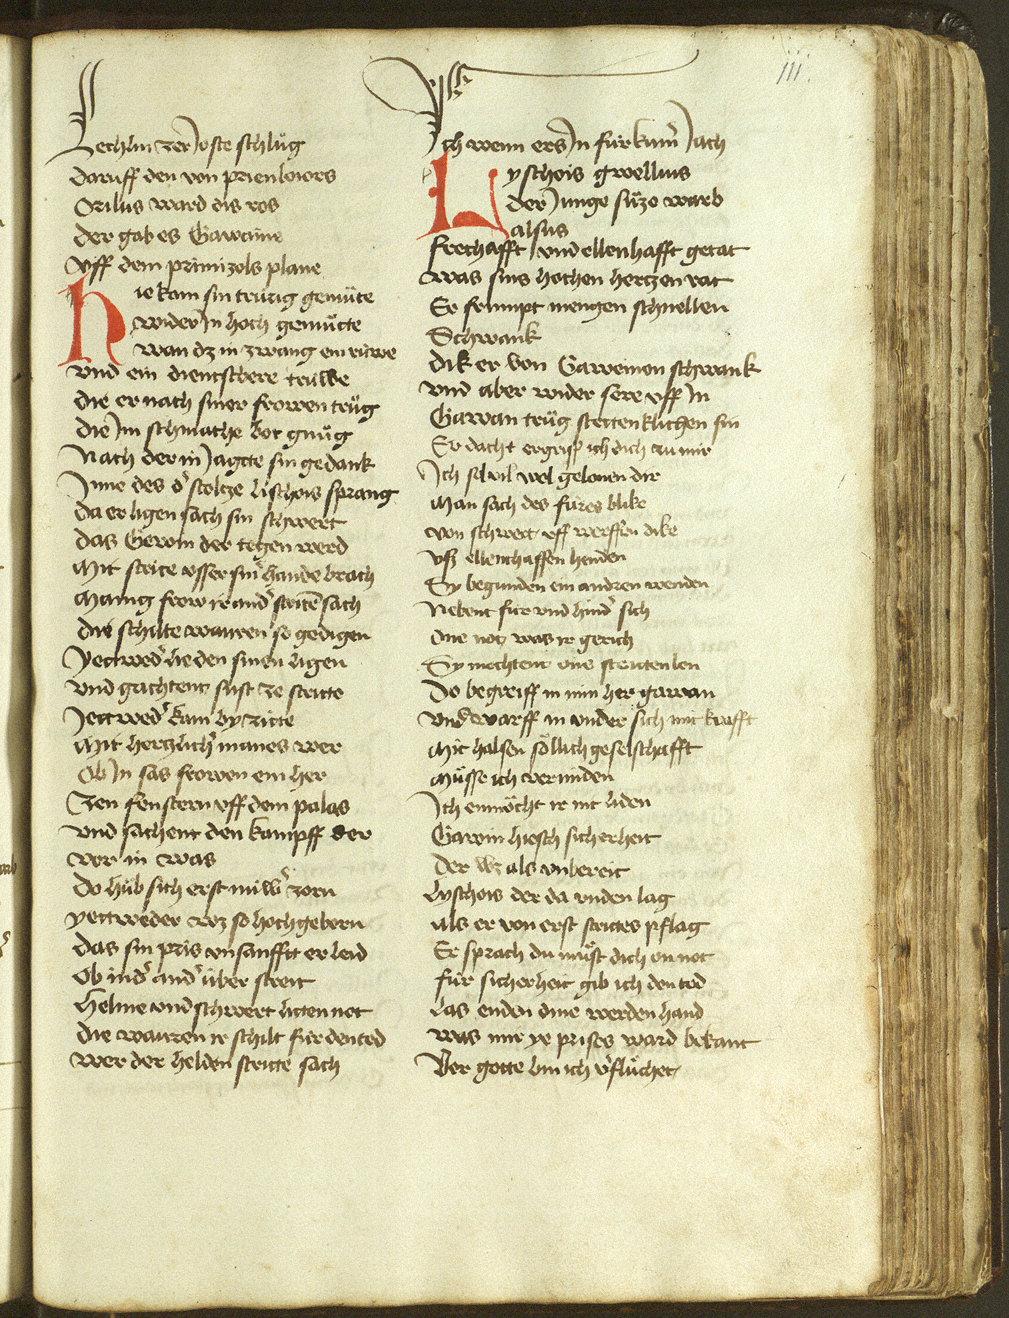 iii
Lechlin zer Joste schlůg
daruff den von prienloiors
Orilus ward dis ros
der gab es Gawane
Vff dem primizols plane
Hie kam sin trurig gemüte
wider Jn hoch gemütte
wan dz in zwang ein rüwe
vnd ein dienstbere trüwe
die er nach siner frowen trůg
die Jm schmache bot gnůg
Nach der in Jagete sin gedank
Jnne des d' stoltze lischois sprang
da er ligen sach sin schwert
das Gewin der tegen werd
Mit strite vsser sin' hande brach
Manig frow ir and' striten sach
die schilte wauren so gedigen
Yettwed' lie den sinen ligen
vnd gachtent sust ze stritte
Jettwed' kam by zitte
Mit hertzlich' manes wer
Ob Jn sas frowen ein her
Zen fenstern vff dem palas
vnd sachent den kampff der
vor in was
do hůb sich erst niuw' zorn
yettweder wz so hochgeborn
das sin pris vnsanfft er leid
Ob in d' and' über streit
Helme vnd schwert litten not
die wauren ir schilt für den tod
wer der helden stritte sach
Jch wenn ers Jn für kum' Jach
Lyschois gwellius
der Junge süze warb
alsus
frechafft vnd ellenhafft getat
was sins hochen hertzen rat
Er frumpt mengen schnellen
Schwank
dik er von Gaweinen schwank
vnd aber wider sere vff Jn
Gawan trůg stettenklichen sin
Er dacht ergriff ich dich zu mir
Jch sol vil wol gelonen dir
Man sach des fures blike
von schwert vff werffen dike
vss ellenthaffen henden
Sy begunden ein andren wenden
Nebent für vnd hind' sich
One not was ir gerich
Sy mechtent ons striten len
Do begreiff in min her gawan
vnd warff in vnder sich mit krafft
Mit halsen söllich geselschafft
Müsse ich vermiden
Jch enmöcht ir nit liden
Gawin hiesch sicherheit
Der wz als vnbereit
Lyschois der da vnden lag
als er von erst strites pflag
Er sprach du můst dich on not
für sicherheit gib ich den tod
Las enden dine werden hand
was mir ye prises ward bekant
Vor gotte bin ich v'flůchet